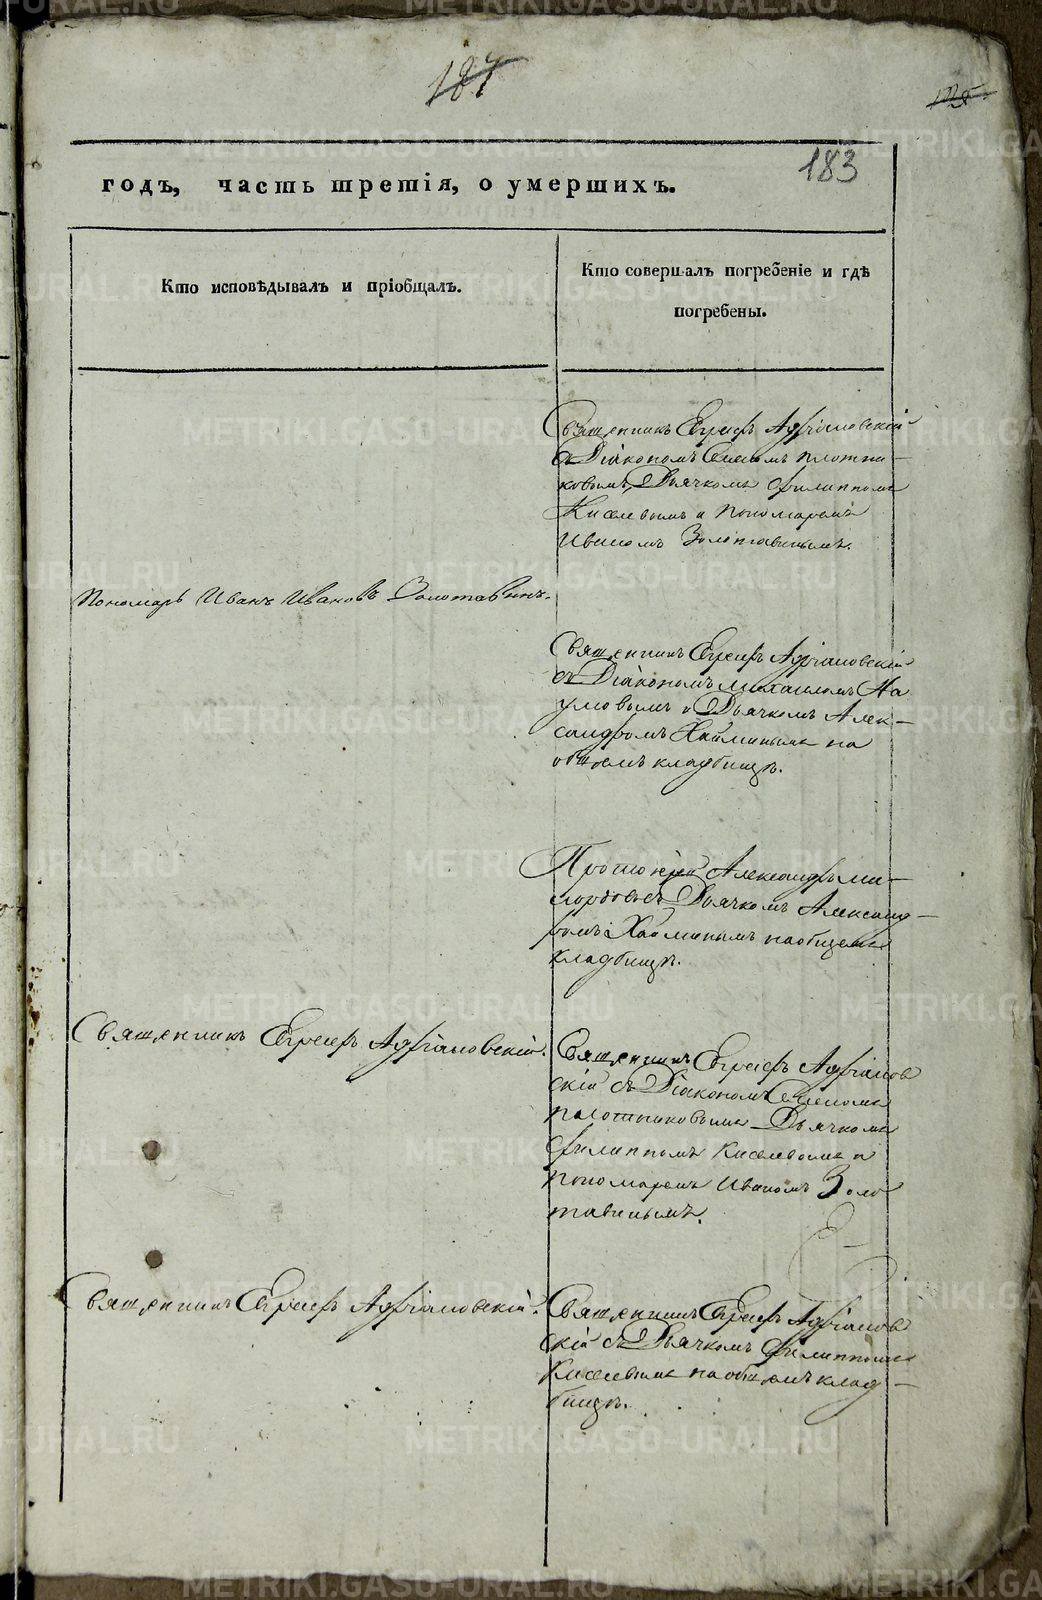 187
183
годъ, часть третія, о умершихъ.
Кто исповѣдывалъ и пріобщалъ.
Кто совершалъ погребеніе и гдѣ
погребены.
Священникъ Евграфъ Адріановскій
съ Діакономъ Симеономъ Плотни-
ковымъ, Дьячкомъ Филиппомъ
Киселевымъ и Пономаремъ
Иваномъ Золотавинымъ.
Пономарь Иванъ Ивановъ Золотавинъ.
Священникъ Евграфъ Адріановскій
съ Діакономъ Михаиломъ На
умовымъ и Дьячкомъ Алек-
сандромъ Хайминымъ на
общемъ кладбищѣ.
Протоіерей Александръ Ми-
лордовъ съ Дьячкомъ Александ-
ромъ Хайминымъ на общемъ
кладбищѣ.
Священникъ Евграфъ Адріановскій.
Священникъ Евграфъ Адріанов
скій съ Діакономъ Симеономъ
Плотниковымъ Дьячкомъ
Филиппомъ Киселевымъ и
пономаремъ Иваномъ Золо
тавинымъ.
Священникъ Евграфъ Адріановскій.
Священникъ Евграфъ Адріанов
скій съ Дьячкомъ Филиппомъ
Киселевымъ на общемъ клад-
бищѣ.
METRIKI.GASO-URAL.RU